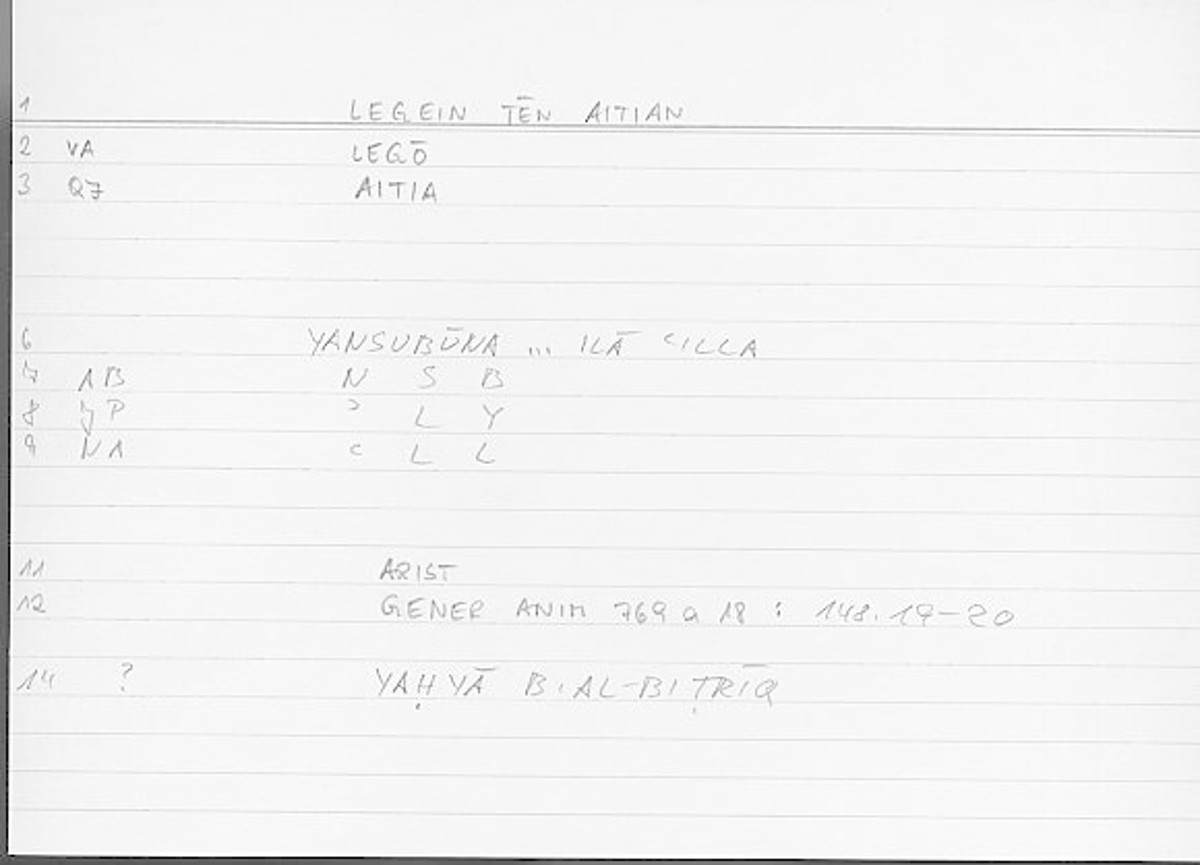 1 LEGEIN TĒN AITIAN
2 VA LEGŌ
3 Q7 AITIA
6 YANSUBŪNA ... ILĀ ʿILLA
7 1B N S B
8 JP ʾ L Y
9 N1 ʿ L L
11 ARIST
12 GENER ANIM 769 a 18 : 148.19-20
14 ? YAḤYĀ B.AL-BIṬRĪQ